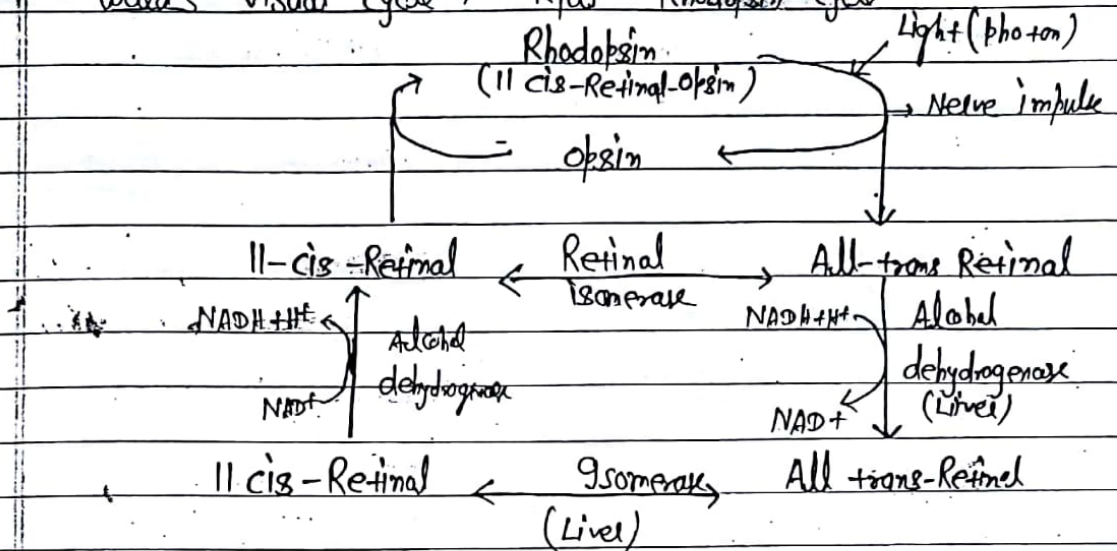 Visual Cycle Rhodopsin Cycle
Light (photon)
Rhodopsin
(11 cis-Retinal-Opsin)
→ Nerve impulse
Opsin
11-cis-Retinal
Retinal
isomerase
All-trans Retinal
NADH+H+
Alcohol
dehydrogenase
NAD+
NADH+H+
Alcohol
dehydrogenase
(Liver)
NAD+
11 cis-Retinal
Isomerase
(Liver)
All trans-Retinal